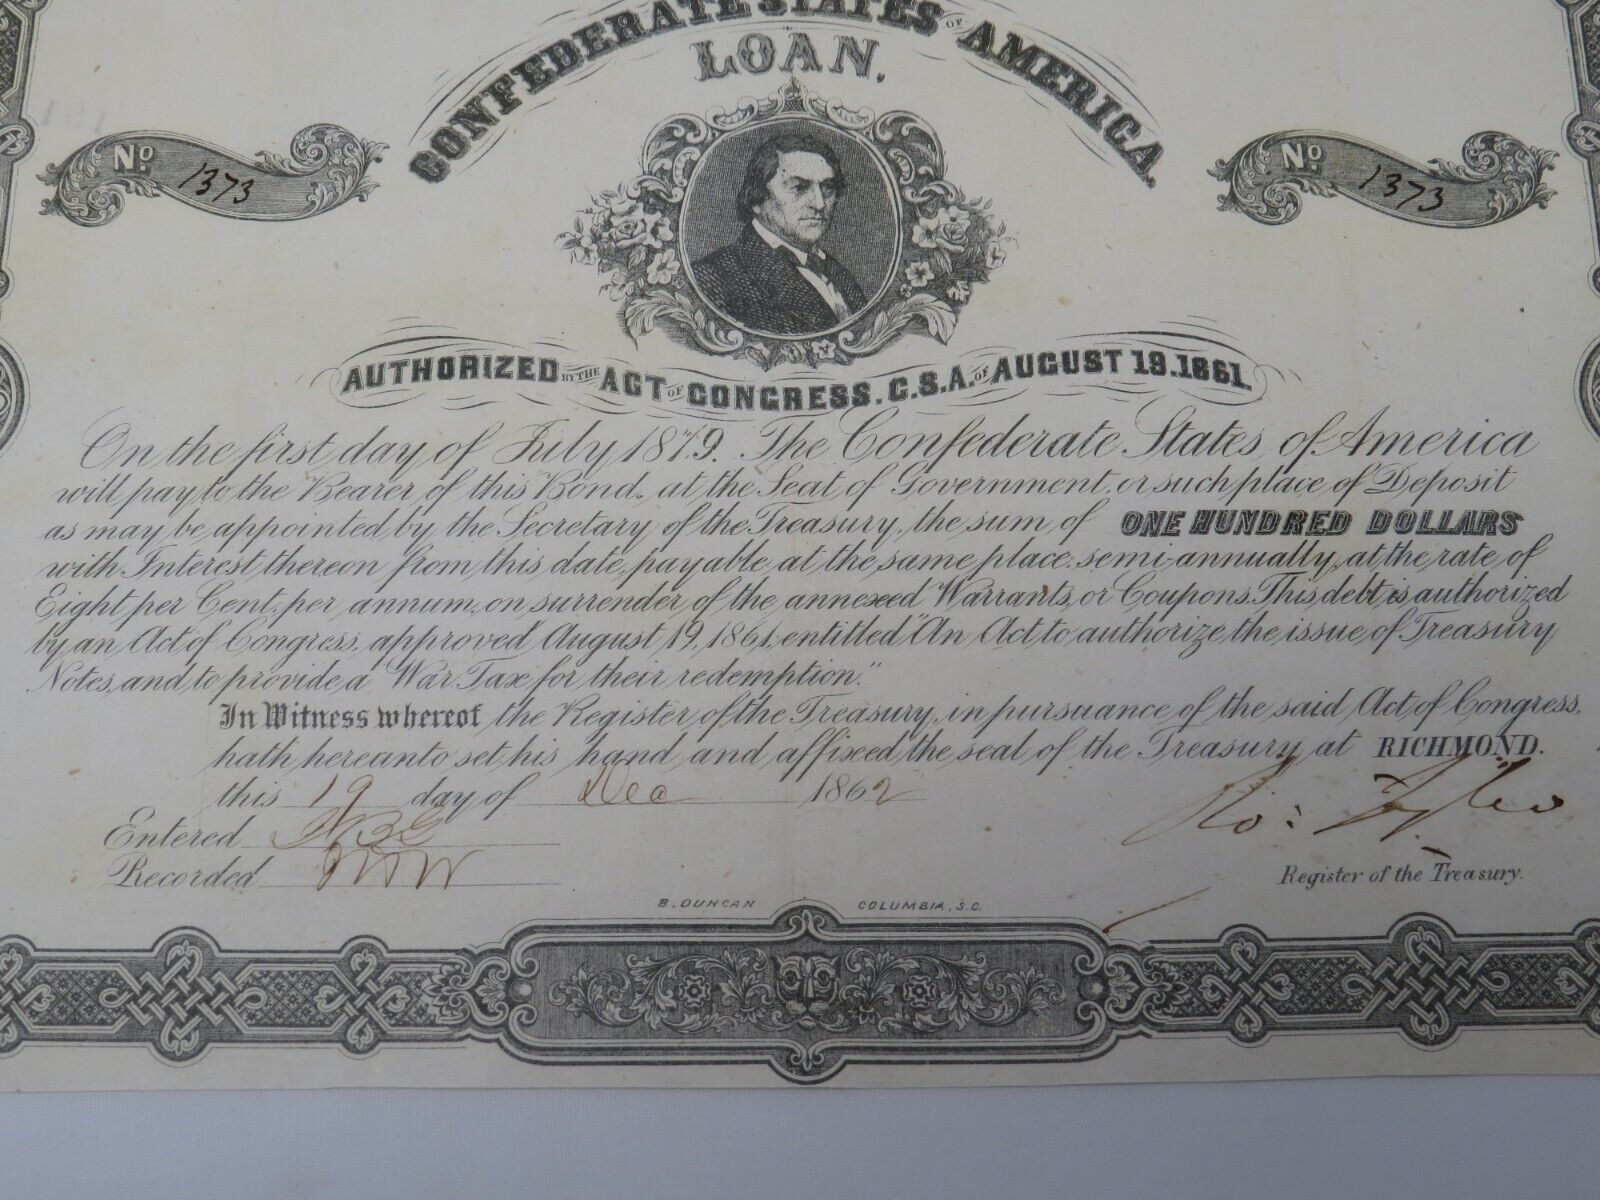 CONFEDERATE STATES OF AMERICA.
LOAN.
No. 1373
No. 1373
AUTHORIZED BY THE ACT OF CONGRESS. C.S.A. OF AUGUST 19. 1861.
On the first day of July 1879. The Confederate States of America
will pay to the Bearer of this Bond, at the Seat of Government, or such place of Deposit
as may be appointed by the Secretary of the Treasury, the sum of ONE HUNDRED DOLLARS
with Interest thereon from this date, payable at the same place, semi-annually, at the rate of
Eight per Cent, per annum, on surrender of the annexed Warrants, or Coupons. This debt is authorized
by an Act of Congress, approved August 19, 1861, entitled "An Act to authorize the issue of Treasury
Notes, and to provide a War Tax for their redemption."
In Witness whereof the Register of the Treasury, in pursuance of the said Act of Congress,
hath hereunto set his hand and affixed the seal of the Treasury at RICHMOND.
this 19 day of Dec 1862
Entered
Recorded
Ro: Tyler
Register of the Treasury.
B. DUNCAN COLUMBIA, S.C.